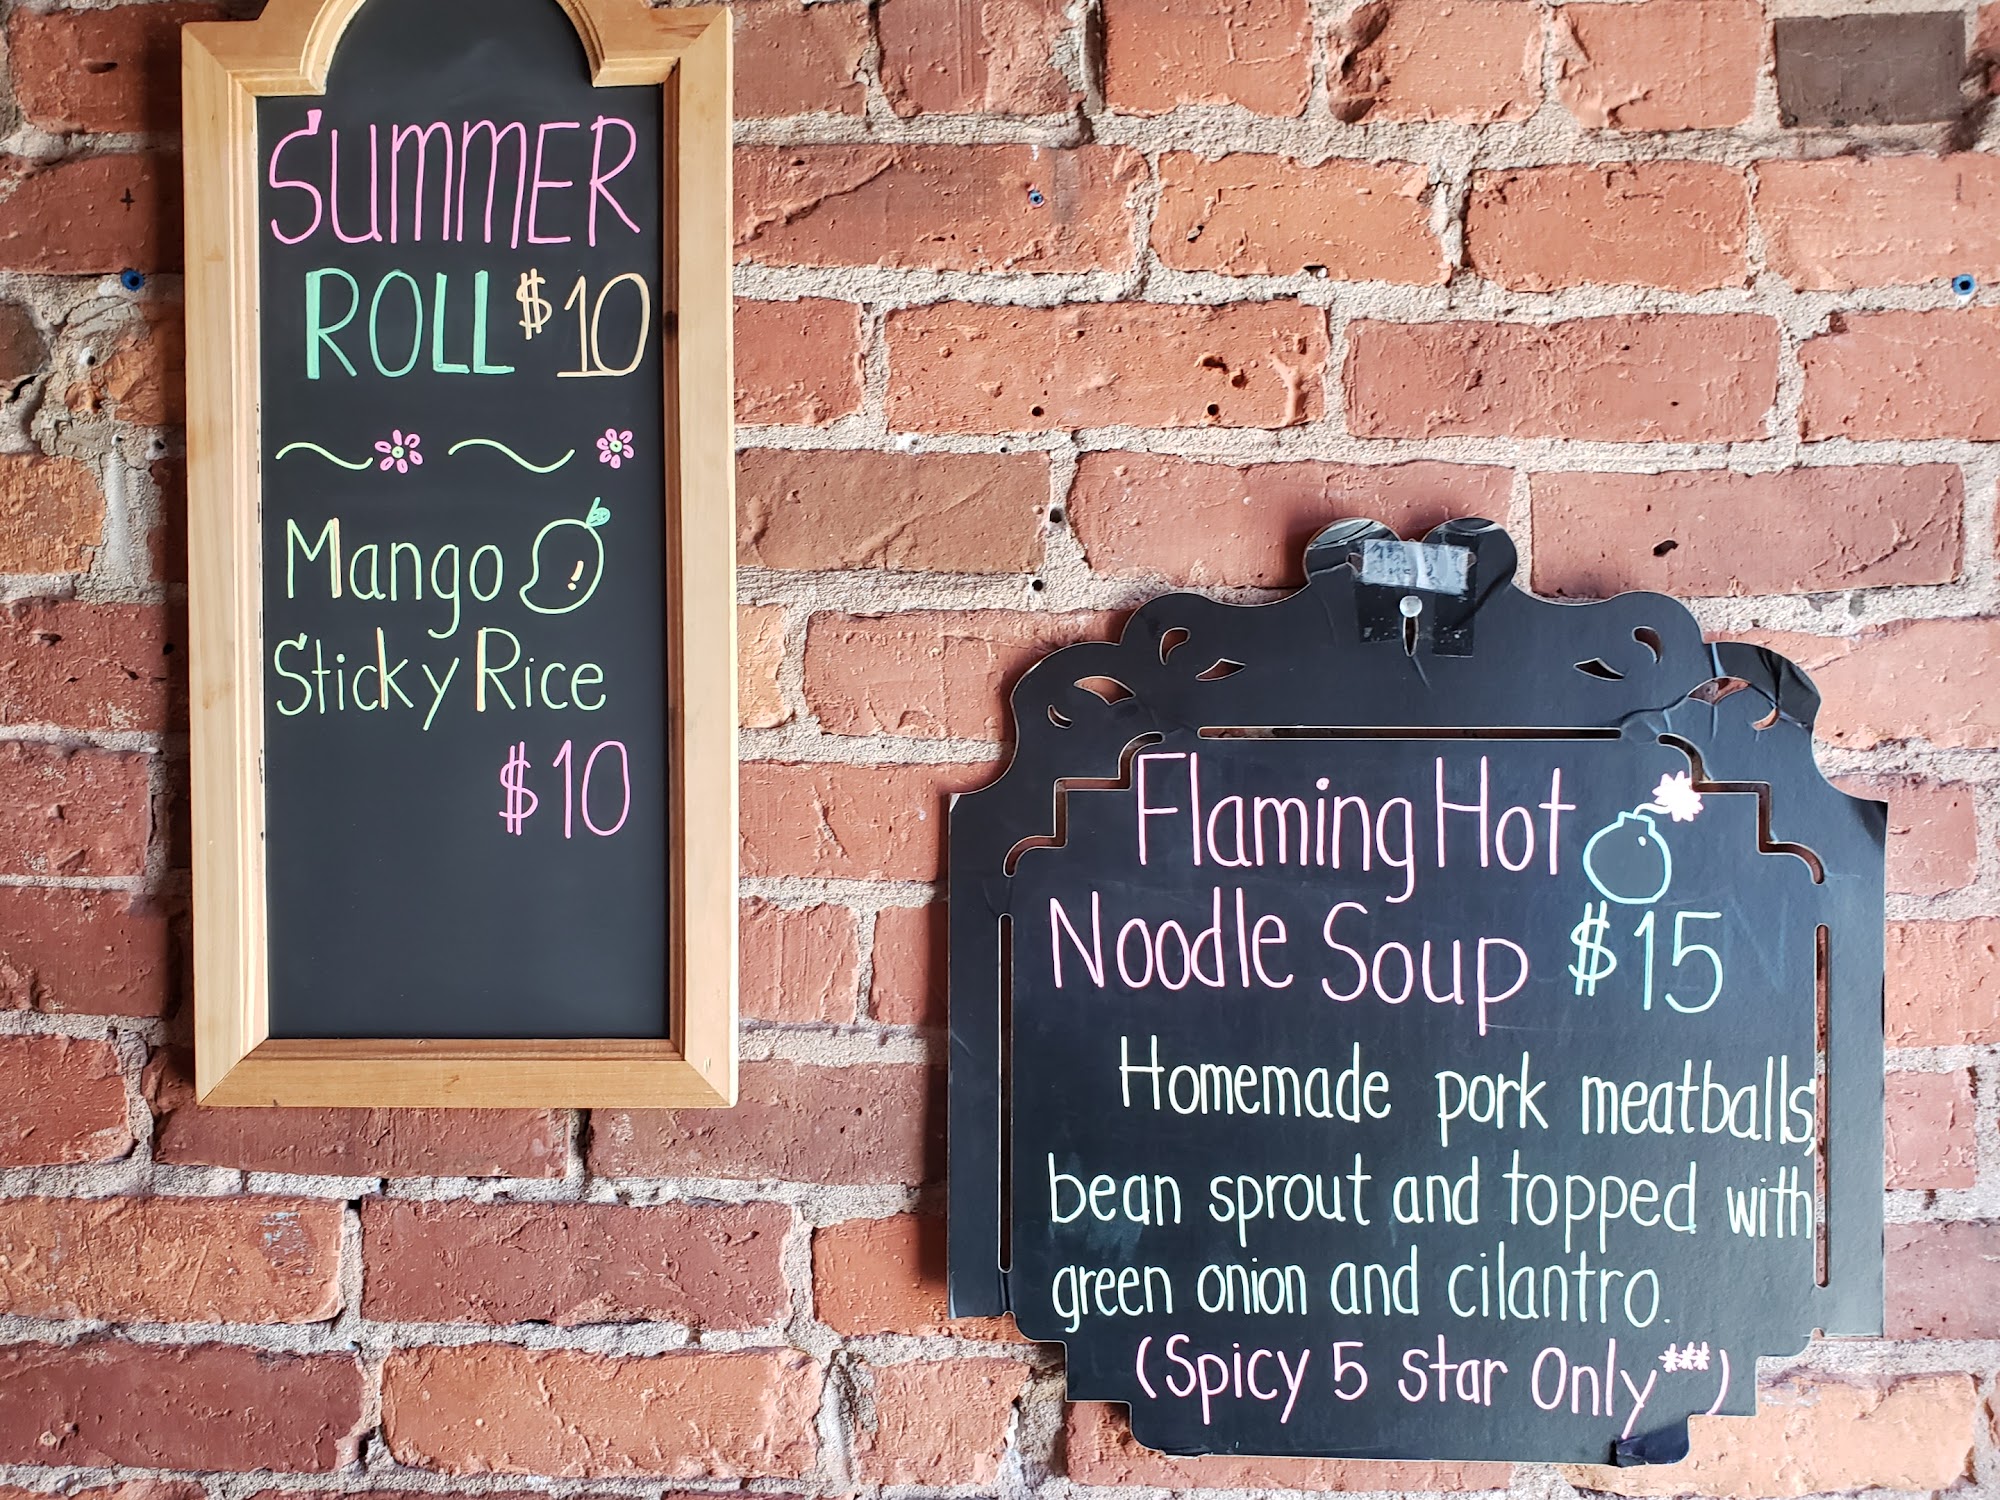 SUMMER
ROLL $10
Mango
Sticky Rice
$10
Flaming Hot
Noodle Soup $15
Homemade pork meatballs,
bean sprout and topped with
green onion and cilantro.
(Spicy 5 Star Only***)